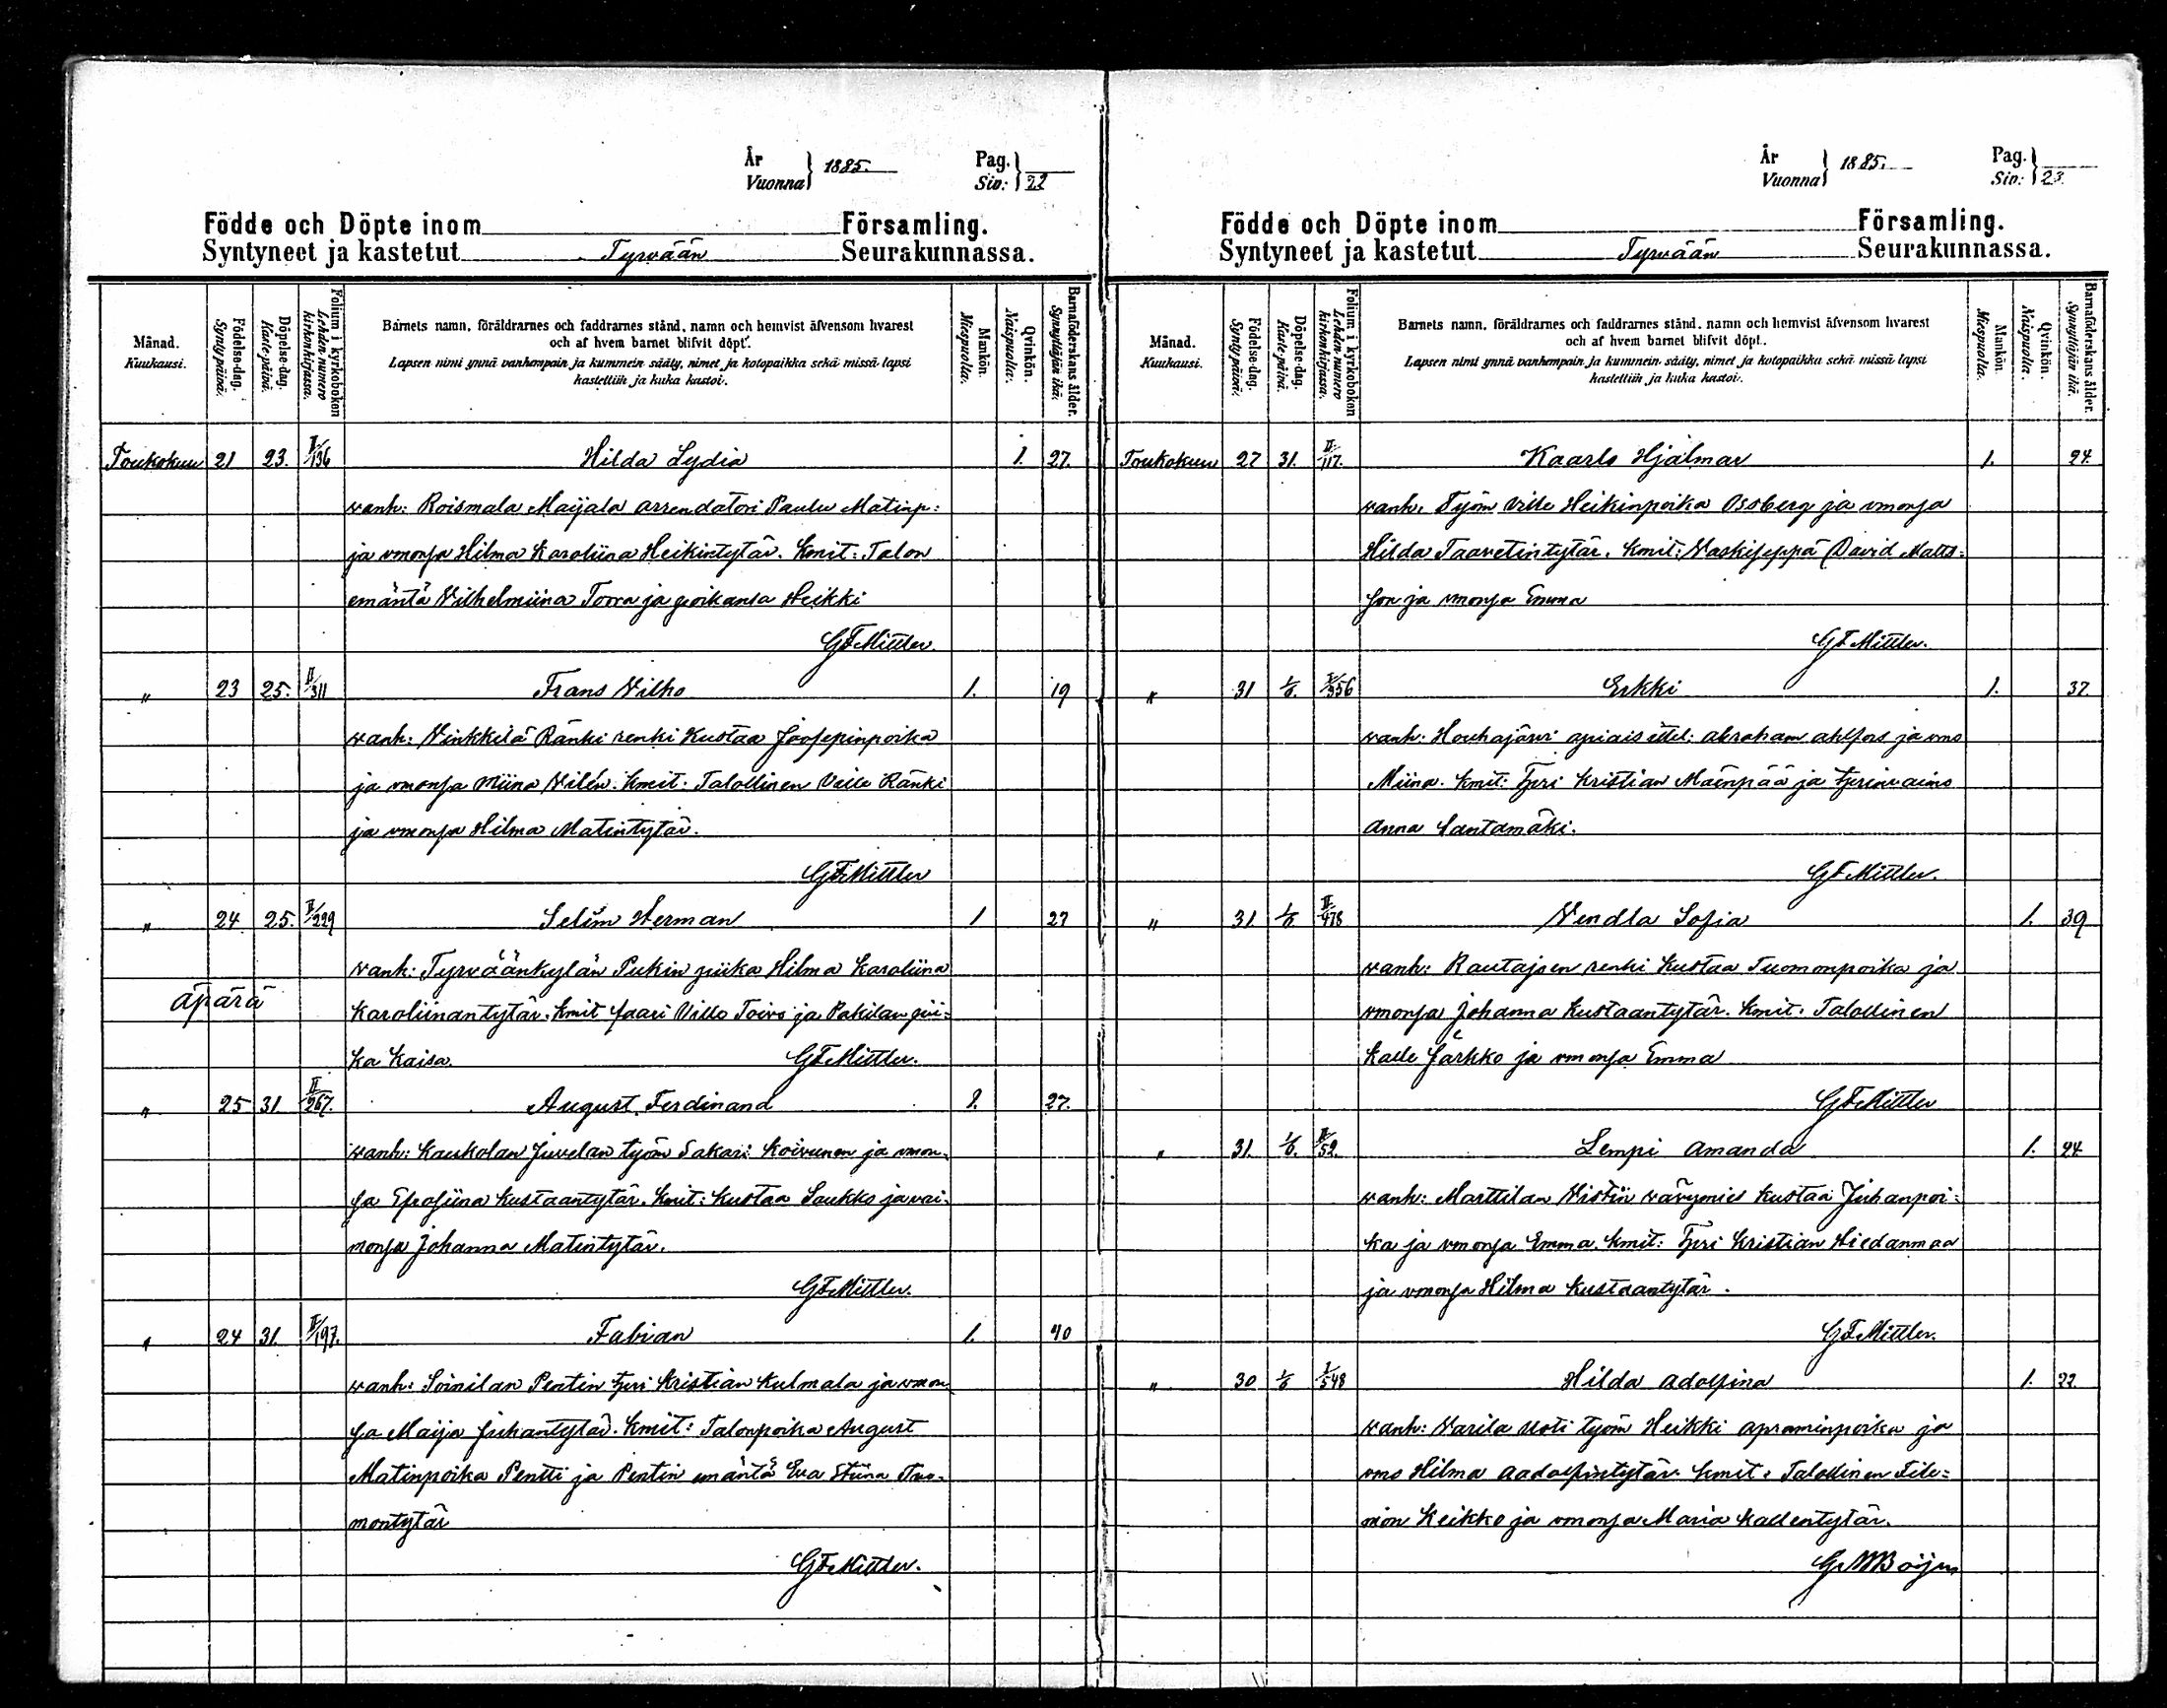 År
Vuonna } 1885.
Pag.
Siv: } 22
Födde och Döpte inom Församling.
Syntyneet ja kastetut Tyrvään Seurakunnassa.
Månad.
Kuukausi.
Födelse-dag.
Syntypäivä.
Döpelse-dag.
Kaste-päivä.
Folium i kyrkoboken
Lehden-numero
kirkonkirjassa.
Barnets namn, föräldrarnes och faddrarnes stånd, namn och hemvist äfvensom hvarest
och af hvem barnet blifvit döpt.
Lapsen nimi ynnä vanhempain ja kummein sääty, nimet ja kotopaikka sekä missä lapsi
kastettiin ja kuka kastoi.
Mankön.
Miespuolia.
Qvinkön.
Naispuolia.
Barnaföderskans ålder.
Synnyttäjän ikä.
Toukokuu 21 23. II/136 Hilda Lydia 1. 27.
vanh: Roismala Maijala arrendatori Paulu Matinp:
ja vmonsa Hilma Karoliina Heikintytär. Kmit: Talon
emäntä Vilhelmiina Torra ja poikansa Heikki
GFMittler.
" 23 25. II/311 Frans Vilho 1. 19
vanh: Vinkkilä Ränki renki Kustaa Joosepinpoika
ja vmonsa Miina Vilén. Kmit: Talollinen Ville Ränki
ja vmonsa Hilma Matintytär.
GFMittler
" 24 25. II/229 Selim Herman 1 27
vanh: Tyrväänkylän Pukin piika Hilma Karoliina
äpärä
Karoliinantytär. Kmit faari Ville Toivo ja Pakilan pii-
ka Kaisa. GFMittler.
" 25 31 II/267. August Ferdinand 1. 27.
vanh: Kaukolan Juvelan työm Sakari Koivunen ja vmon-
sa Eprosiina Kustaantytär. Kmit: Kustaa Saukko ja vai-
monsa Johanna Matintytär.
GFMittler.
" 24 31. II/197. Fabian 1. 40
vanh: Soinilan Pentin tpri Kristian Kulmala ja vmon-
sa Maija Juhantytär. Kmit: Talonpoika August
Matinpoika Pentti ja Pentin emäntä Eva Stiina Tuo-
montytär
GFMittler.
År
Vuonna } 1885.
Pag.
Siv: } 23.
Födde och Döpte inom Församling.
Syntyneet ja kastetut Tyrvään Seurakunnassa.
Månad.
Kuukausi.
Födelse-dag.
Syntypäivä.
Döpelse-dag.
Kaste-päivä.
Folium i kyrkoboken
Lehden-numero
kirkonkirjassa.
Barnets namn, föräldrarnes och faddrarnes stånd, namn och hemvist äfvensom hvarest
och af hvem barnet blifvit döpt.
Lapsen nimi ynnä vanhempain ja kummein sääty, nimet ja kotopaikka sekä missä lapsi
kastettiin ja kuka kastoi.
Mankön.
Miespuolia.
Qvinkön.
Naispuolia.
Barnaföderskans ålder.
Synnyttäjän ikä.
Toukokuu 27 31. II/117. Kaarlo Hjalmar 1. 24.
vanh. Työm Ville Heikinpoika Ossberg ja vmonsa
Hilda Taavetintytär. Kmit: Vaskiseppä David Matts-
son ja vmonsa Emma
GFMittler.
" 31 1/6. I/356 Erkki 1. 37.
vanh: Houhajärvi itsel: Abraham Ahlfors ja vmo
Miina. Kmit: Tpri Kristian Mäenpää ja tprinvaimo
Anna Santamäki.
GFMittler.
" 31. 1/6. II/478 Vendla Sofia 1. 39
vanh: Rautajoen renki Kustaa Tuomonpoika ja
vmonsa Johanna Kustaantytär. Kmit. Talollinen
Kalle Järkko ja vmonsa Emma
GFMittler
" 31. 1/6. II/52. Lempi Amanda 1. 24
vanh: Marttilan Vistin vävymies Kustaa Juhanpoi-
ka ja vmonsa Emma. Kmit: Tpri Kristian Hiedanmaa
ja vmonsa Hilma Kustaantytär.
GFMittler.
" 30 1/6 I/548 Hilda Adolfina 1. 22.
vanh: Varila Uoti työm Heikki Apraminpoika ja
vmo Hilma Aadolfintytär. Kmit. Talollinen File-
mon Keikko ja vmonsa Maria Kallentytär.